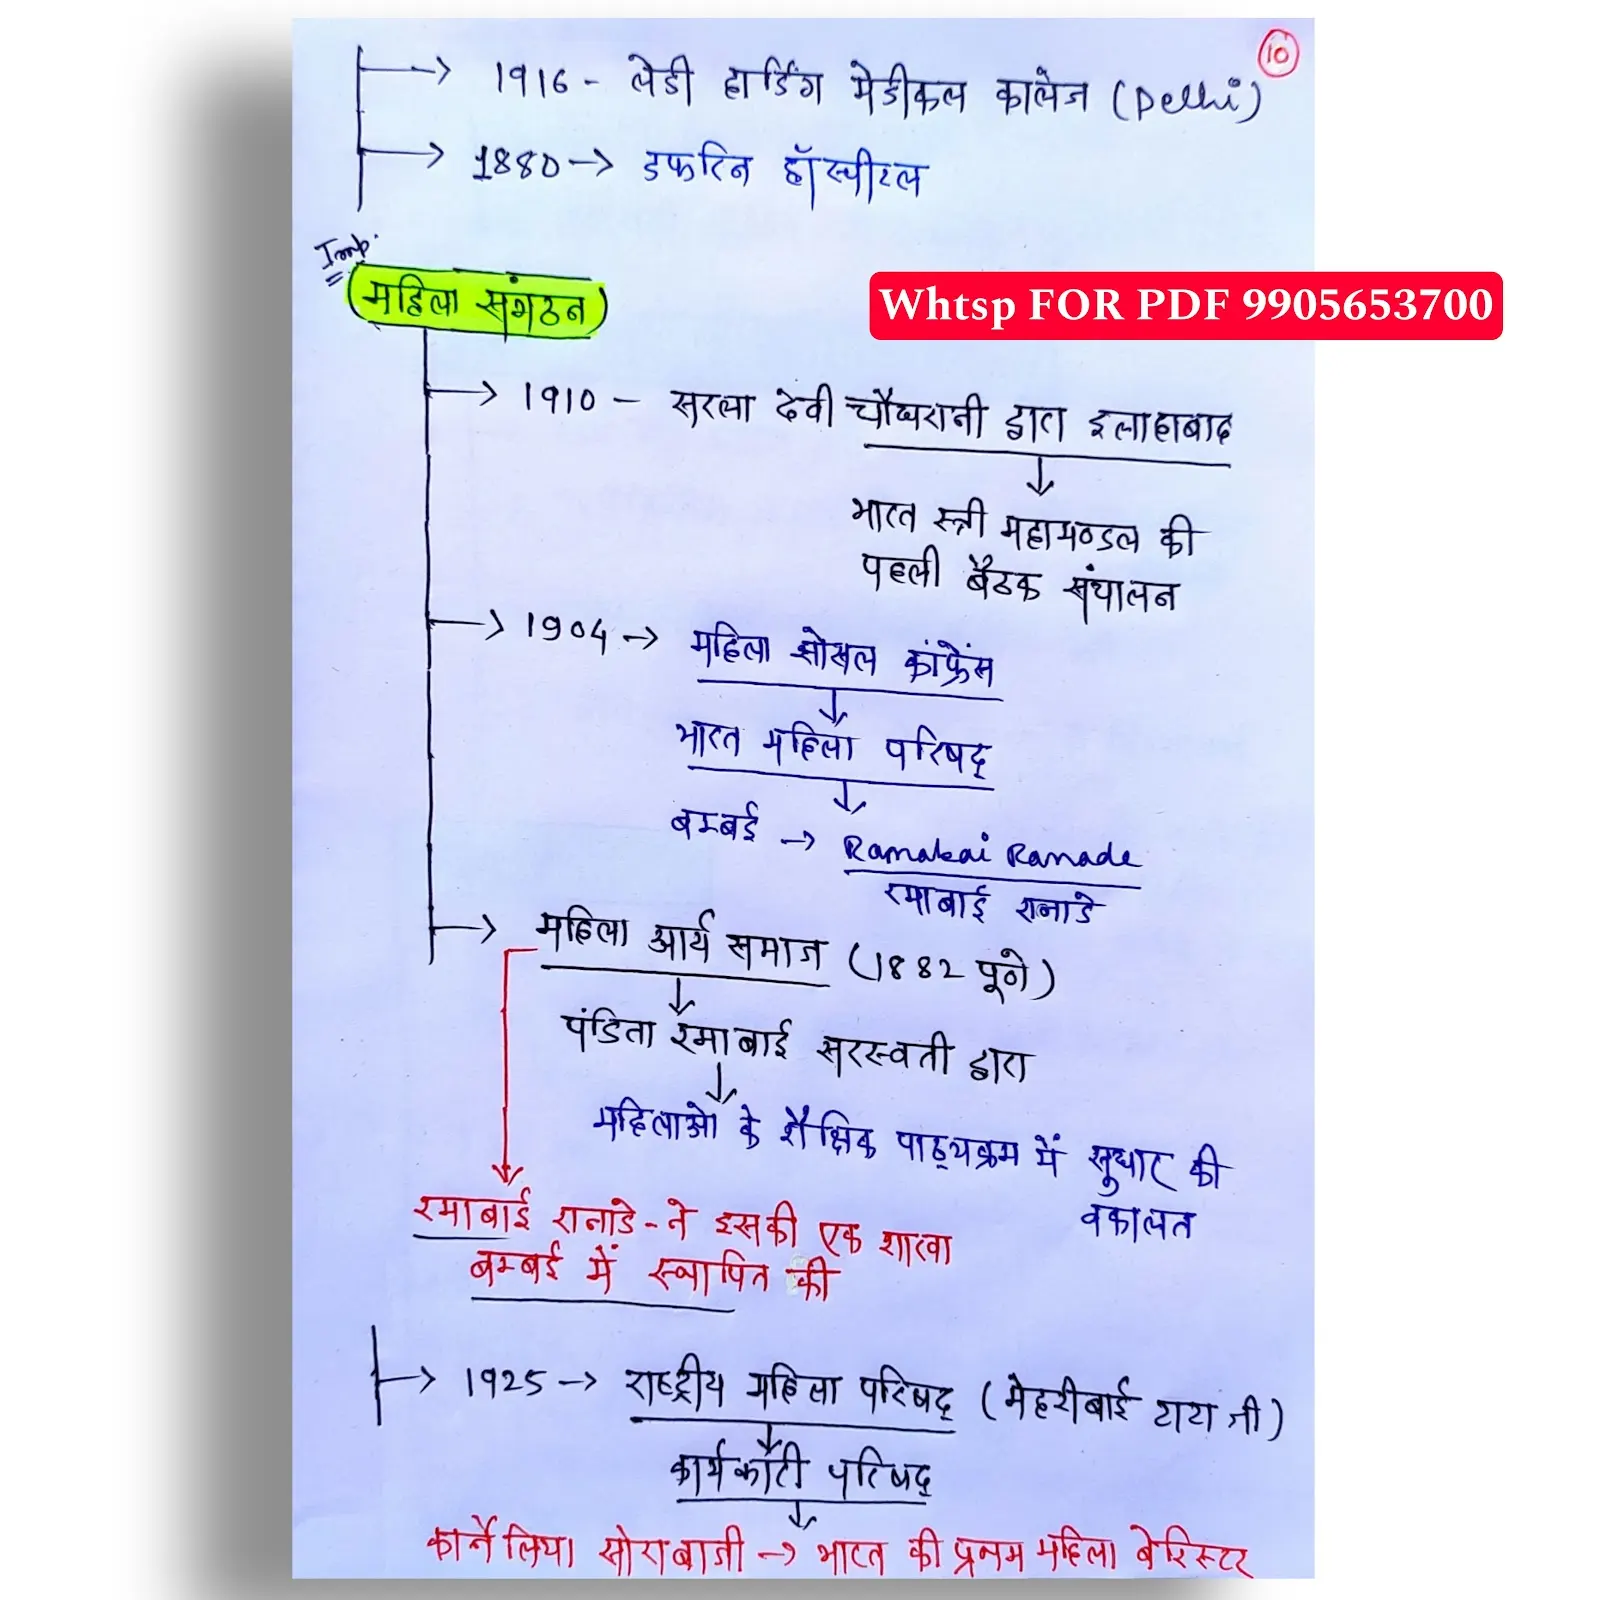 10
1916 - लेडी हार्डिंग मेडीकल कालेज (Delhi)
1880 → डफरिन हॉस्पीटल
Imp.
(महिला संगठन)
Whtsp FOR PDF 9905653700
1910 - सरला देवी चौधरानी द्वारा इलाहाबाद
भारत स्त्री महामण्डल की
पहली बैठक संचालन
1904 → महिला सोसल कांफ्रेंस
भारत महिला परिषद्
बम्बई → Ramabai Ranade
रमाबाई रानाडे
महिला आर्य समाज (1882 पूणे)
पंडिता रमाबाई सरस्वती द्वारा
महिलाओं के शैक्षिक पाठ्यक्रम में सुधार की
वकालत
रमाबाई रानाडे - ने इसकी एक शाखा
बम्बई में स्थापित की
1925 → राष्ट्रीय महिला परिषद् (मेहरीबाई टाटा जी)
कार्यकारी परिषद्
कार्नेलिया सोराबाजी → भारत की प्रथम महिला बेरिस्टर